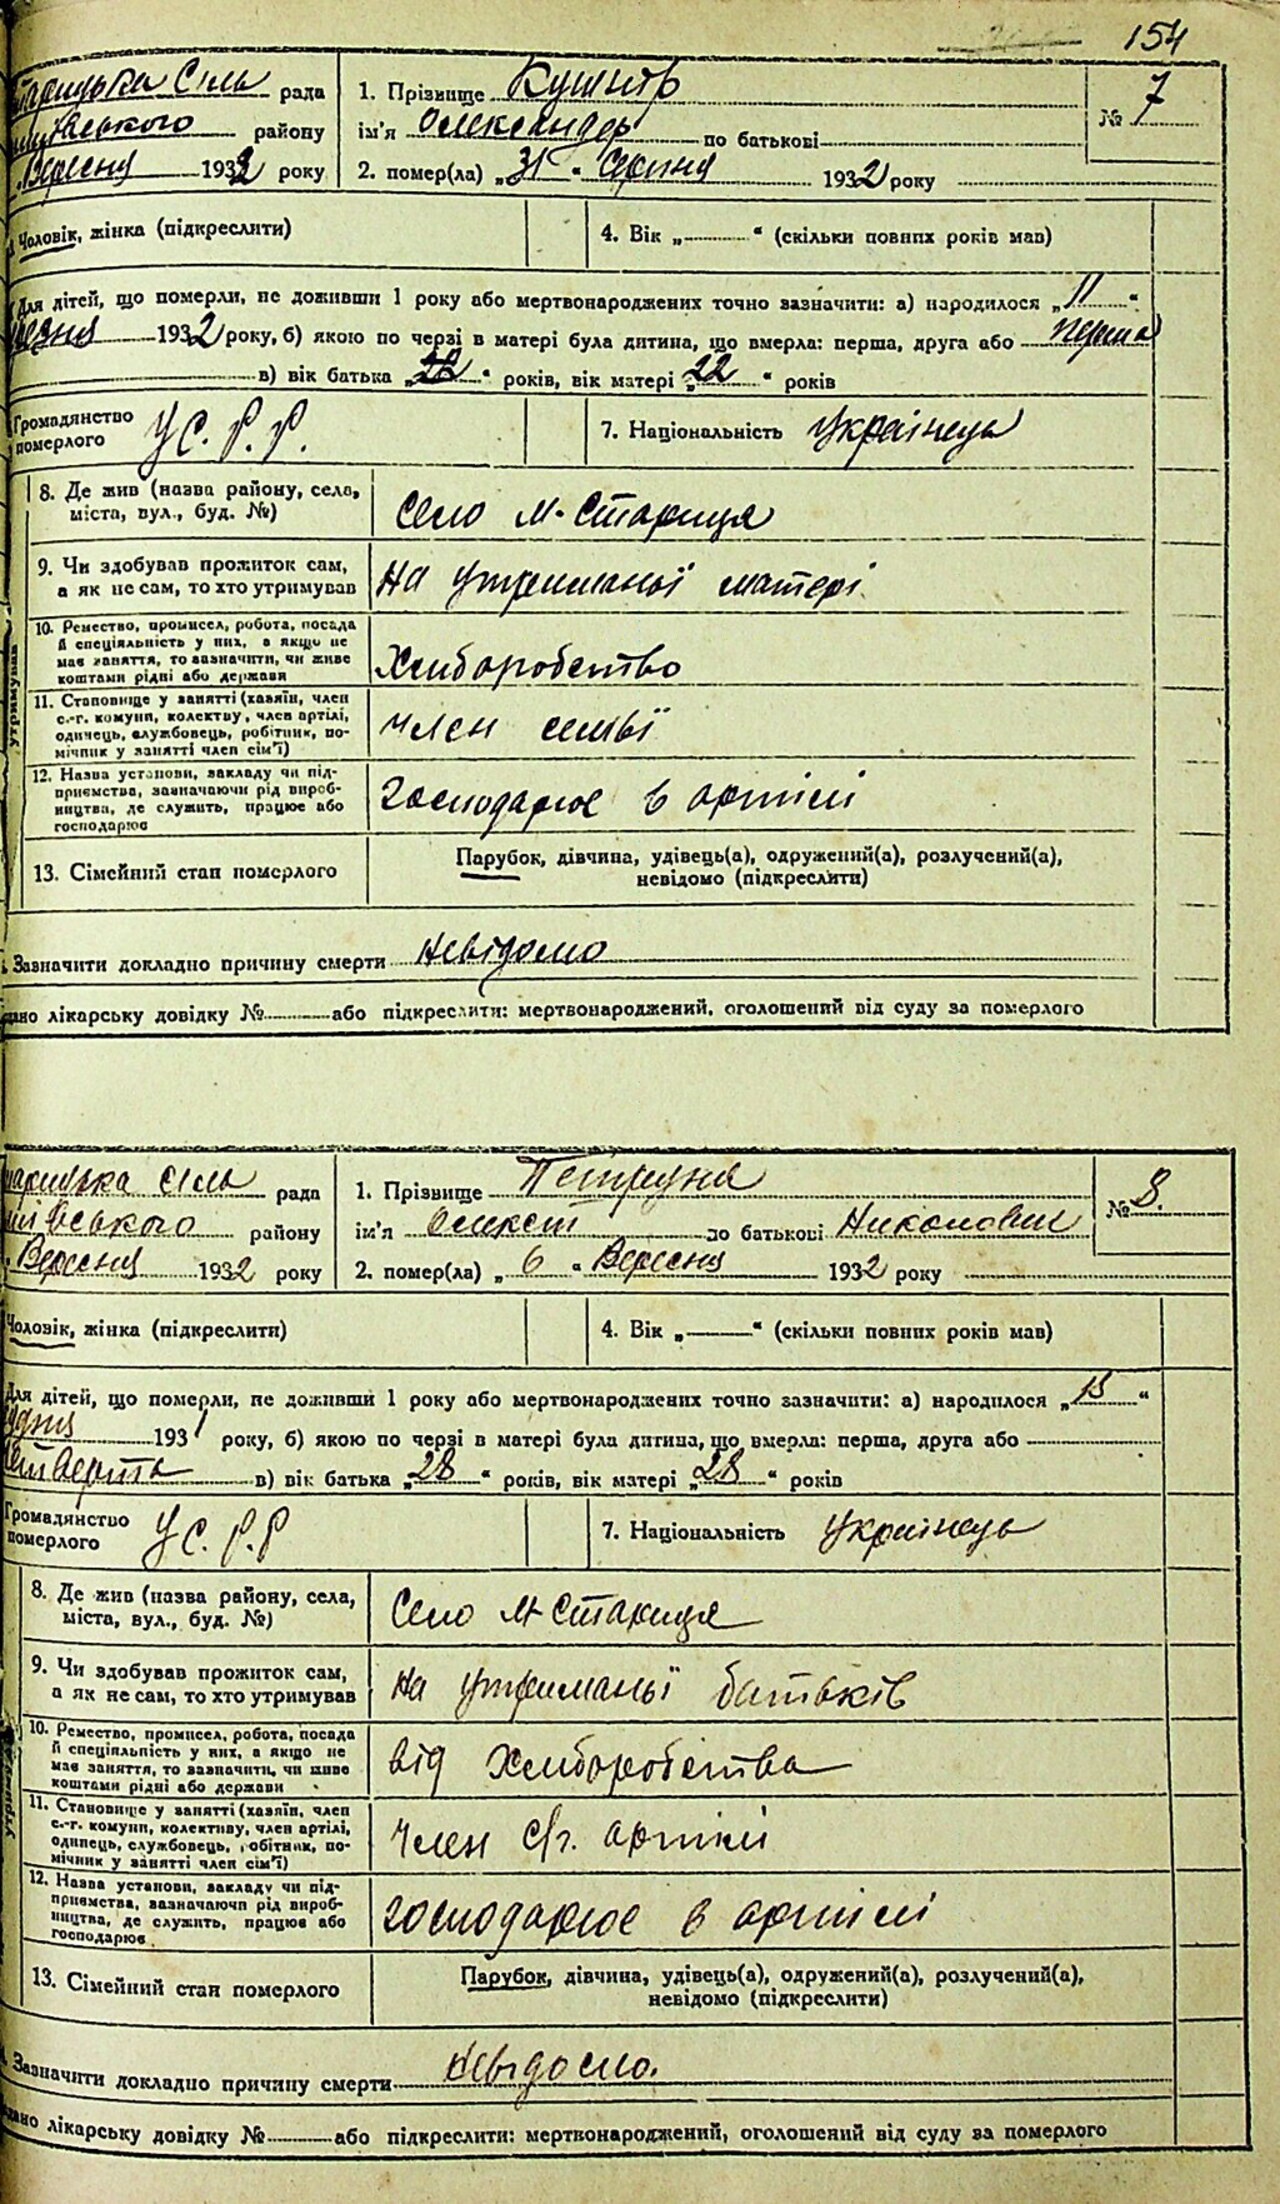 154
Старицька Сіль рада
району
Вересня 1932 року
1. Прізвище Кушнір
ім'я Олександр по батькові
2. помер(ла) „31“ Серпня 1932 року
№ 7
Чоловік, жінка (підкреслити)
4. Вік „ “ (скільки повних років мав)
Для дітей, що померли, не доживши 1 року або мертвонароджених точно зазначити: а) народилося „11“
1932 року, б) якою по черзі в матері була дитина, що вмерла: перша, друга або перша
в) вік батька „ “ років, вік матері „22“ років
Громадянство померлого У С. Р. Р.
7. Національність Українець
8. Де жив (назва району, села,
міста, вул., буд. №)
село М-Стариця
9. Чи здобував прожиток сам,
а як не сам, то хто утримував
На утриманьї матері
10. Ремество, промисел, робота, посада
й спеціяльність у них, а якщо не
має заняття, то зазначити, чи живе
коштами рідні або держави
Хлиборобство
11. Становище у занятті (хазяїн, член
с.-г. комуни, колективу, член артілі,
одинець, службовець, робітник, по-
мічник у занятті член сім'ї)
член семьї
12. Назва установи, закладу чи під-
приємства, зазначаючи рід вироб-
ництва, де служить, працює або
господарює
господарює в артілі
13. Сімейний стан померлого
Парубок, дівчина, удівець(а), одружений(а), розлучений(а),
невідомо (підкреслити)
Зазначити докладно причину смерти невідомо
лікарську довідку № або підкреслити: мертвонароджений, оголошений від суду за померлого
утримував
Старицька Сіль рада
району
Вересня 1932 року
1. Прізвище Петруня
ім'я Олексій по батькові Николович
2. помер(ла) „6“ Вересня 1932 року
№ 8.
Чоловік, жінка (підкреслити)
4. Вік „ “ (скільки повних років мав)
Для дітей, що померли, не доживши 1 року або мертвонароджених точно зазначити: а) народилося „ “
1931 року, б) якою по черзі в матері була дитина, що вмерла: перша, друга або
четверта в) вік батька „28“ років, вік матері „28“ років
Громадянство померлого У С. Р. Р
7. Національність Українець
8. Де жив (назва району, села,
міста, вул., буд. №)
Село М-Стариця
9. Чи здобував прожиток сам,
а як не сам, то хто утримував
на утриманьї батьків
10. Ремество, промисел, робота, посада
й спеціяльність у них, а якщо не
має заняття, то зазначити, чи живе
коштами рідні або держави
від Хлиборобства
11. Становище у занятті (хазяїн, член
с.-г. комуни, колективу, член артілі,
одинець, службовець, робітник, по-
мічник у занятті член сім'ї)
член с/г. артілі
12. Назва установи, закладу чи під-
приємства, зазначаючи рід вироб-
ництва, де служить, працює або
господарює
господарює в артілі
13. Сімейний стан померлого
Парубок, дівчина, удівець(а), одружений(а), розлучений(а),
невідомо (підкреслити)
Зазначити докладно причину смерти невідомо.
лікарську довідку № або підкреслити: мертвонароджений, оголошений від суду за померлого